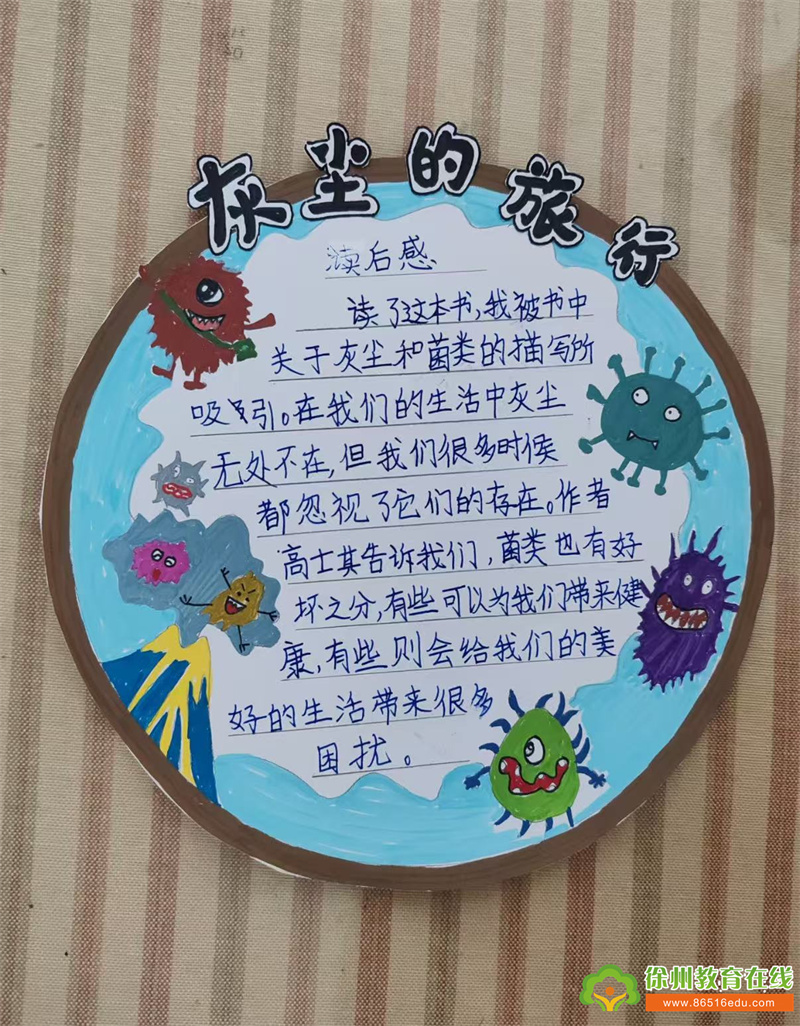 灰尘的旅行
读后感
读了这本书,我被书中
关于灰尘和菌类的描写所
吸引。在我们的生活中灰尘
无处不在,但我们很多时候
都忽视了它们的存在。作者
高士其告诉我们,菌类也有好
坏之分,有些可以为我们带来健
康,有些则会给我们的美
好的生活带来很多
困扰。
徐州教育在线
www.86516edu.com